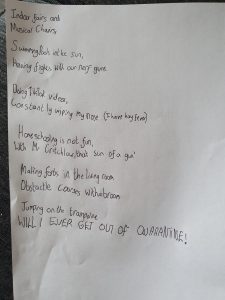 Indoor fairs and
Musical Chairs,
Swimming pools in the sun,
Having fights with our nerf guns.
Doing Tiktok videos,
Constantly wiping my nose (I have hay fever)
Homeschooling is not fun,
With Mr Critchlow, that 'sun of a gun'
Making forts in the living room
Obstacle courses with a broom
Jumping on the trampoline
WILL I EVER GET OUT OF QUARANTINE!